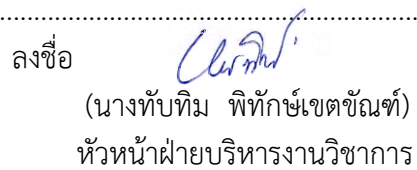 ลงชื่อ
(นางทับทิม พิทักษ์เขตขัณฑ์)
หัวหน้าฝ่ายบริหารงานวิชาการ